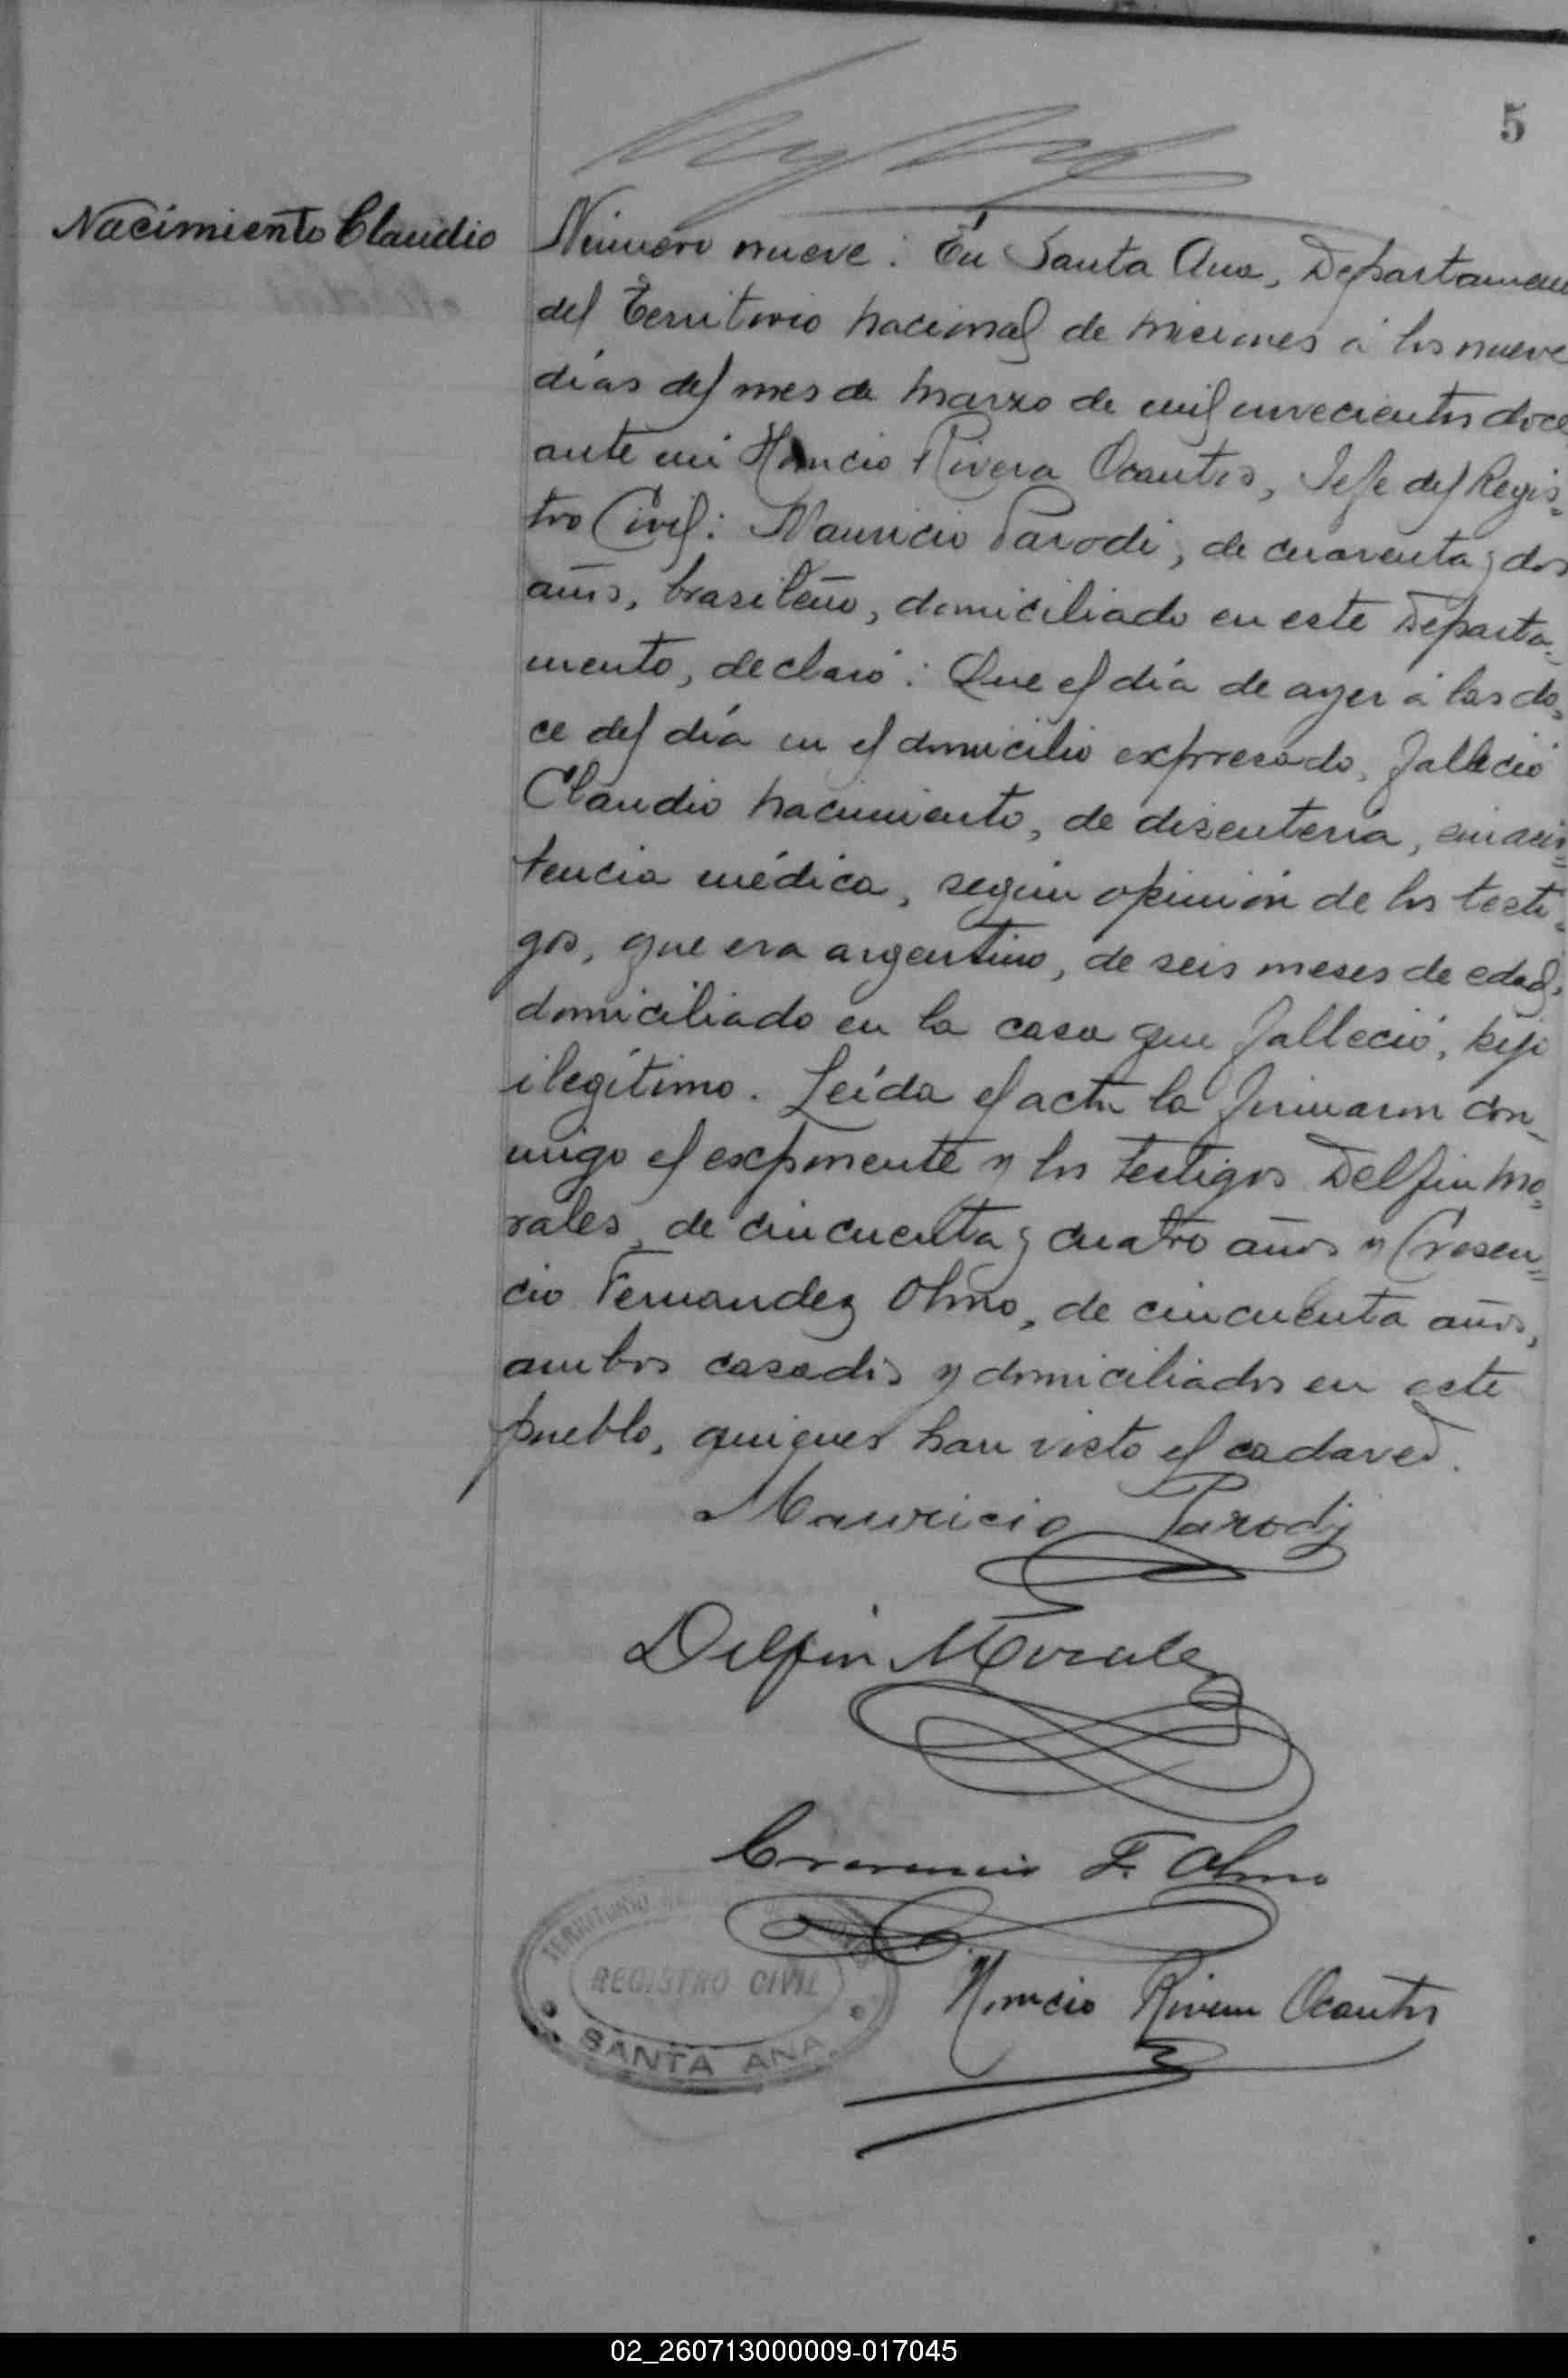 5
Nacimiento Claudio
Número nueve: En Santa Ana, Departamen
del Territorio nacional de misiones á los nueve
días del mes de marzo de mil novecientos doce
ante mi Horacio Rivera Ocantos, Jefe del Regis=
tro Civil: Mauricio Parodi, de cuarenta y dos
años, brasileño, domiciliado en este Departa-
mento, declaró: Que el día de ayer á las do-
ce del día en el domicilio expresado, falleció
Claudio nacimiento, de disentería, sin asis=
tencia médica, según opinión de los testi-
gos, que era argentino, de seis meses de edad,
domiciliado en la casa que falleció, hijo
ilegítimo. Leída el acta la firmaron con-
migo el exponente y los testigos Delfin Mo=
rales, de cincuenta y cuatro años y Cresen=
cio Fernandez Olmo, de cincuenta años,
ambos casados y domiciliados en este
pueblo, quienes han visto el cadaver.
Mauricio Parodi
Delfin Morales
F. Olmo
Horacio Rivera Ocantos
TERRITORIO
REGISTRO CIVIL
SANTA ANA
02_260713000009-017045